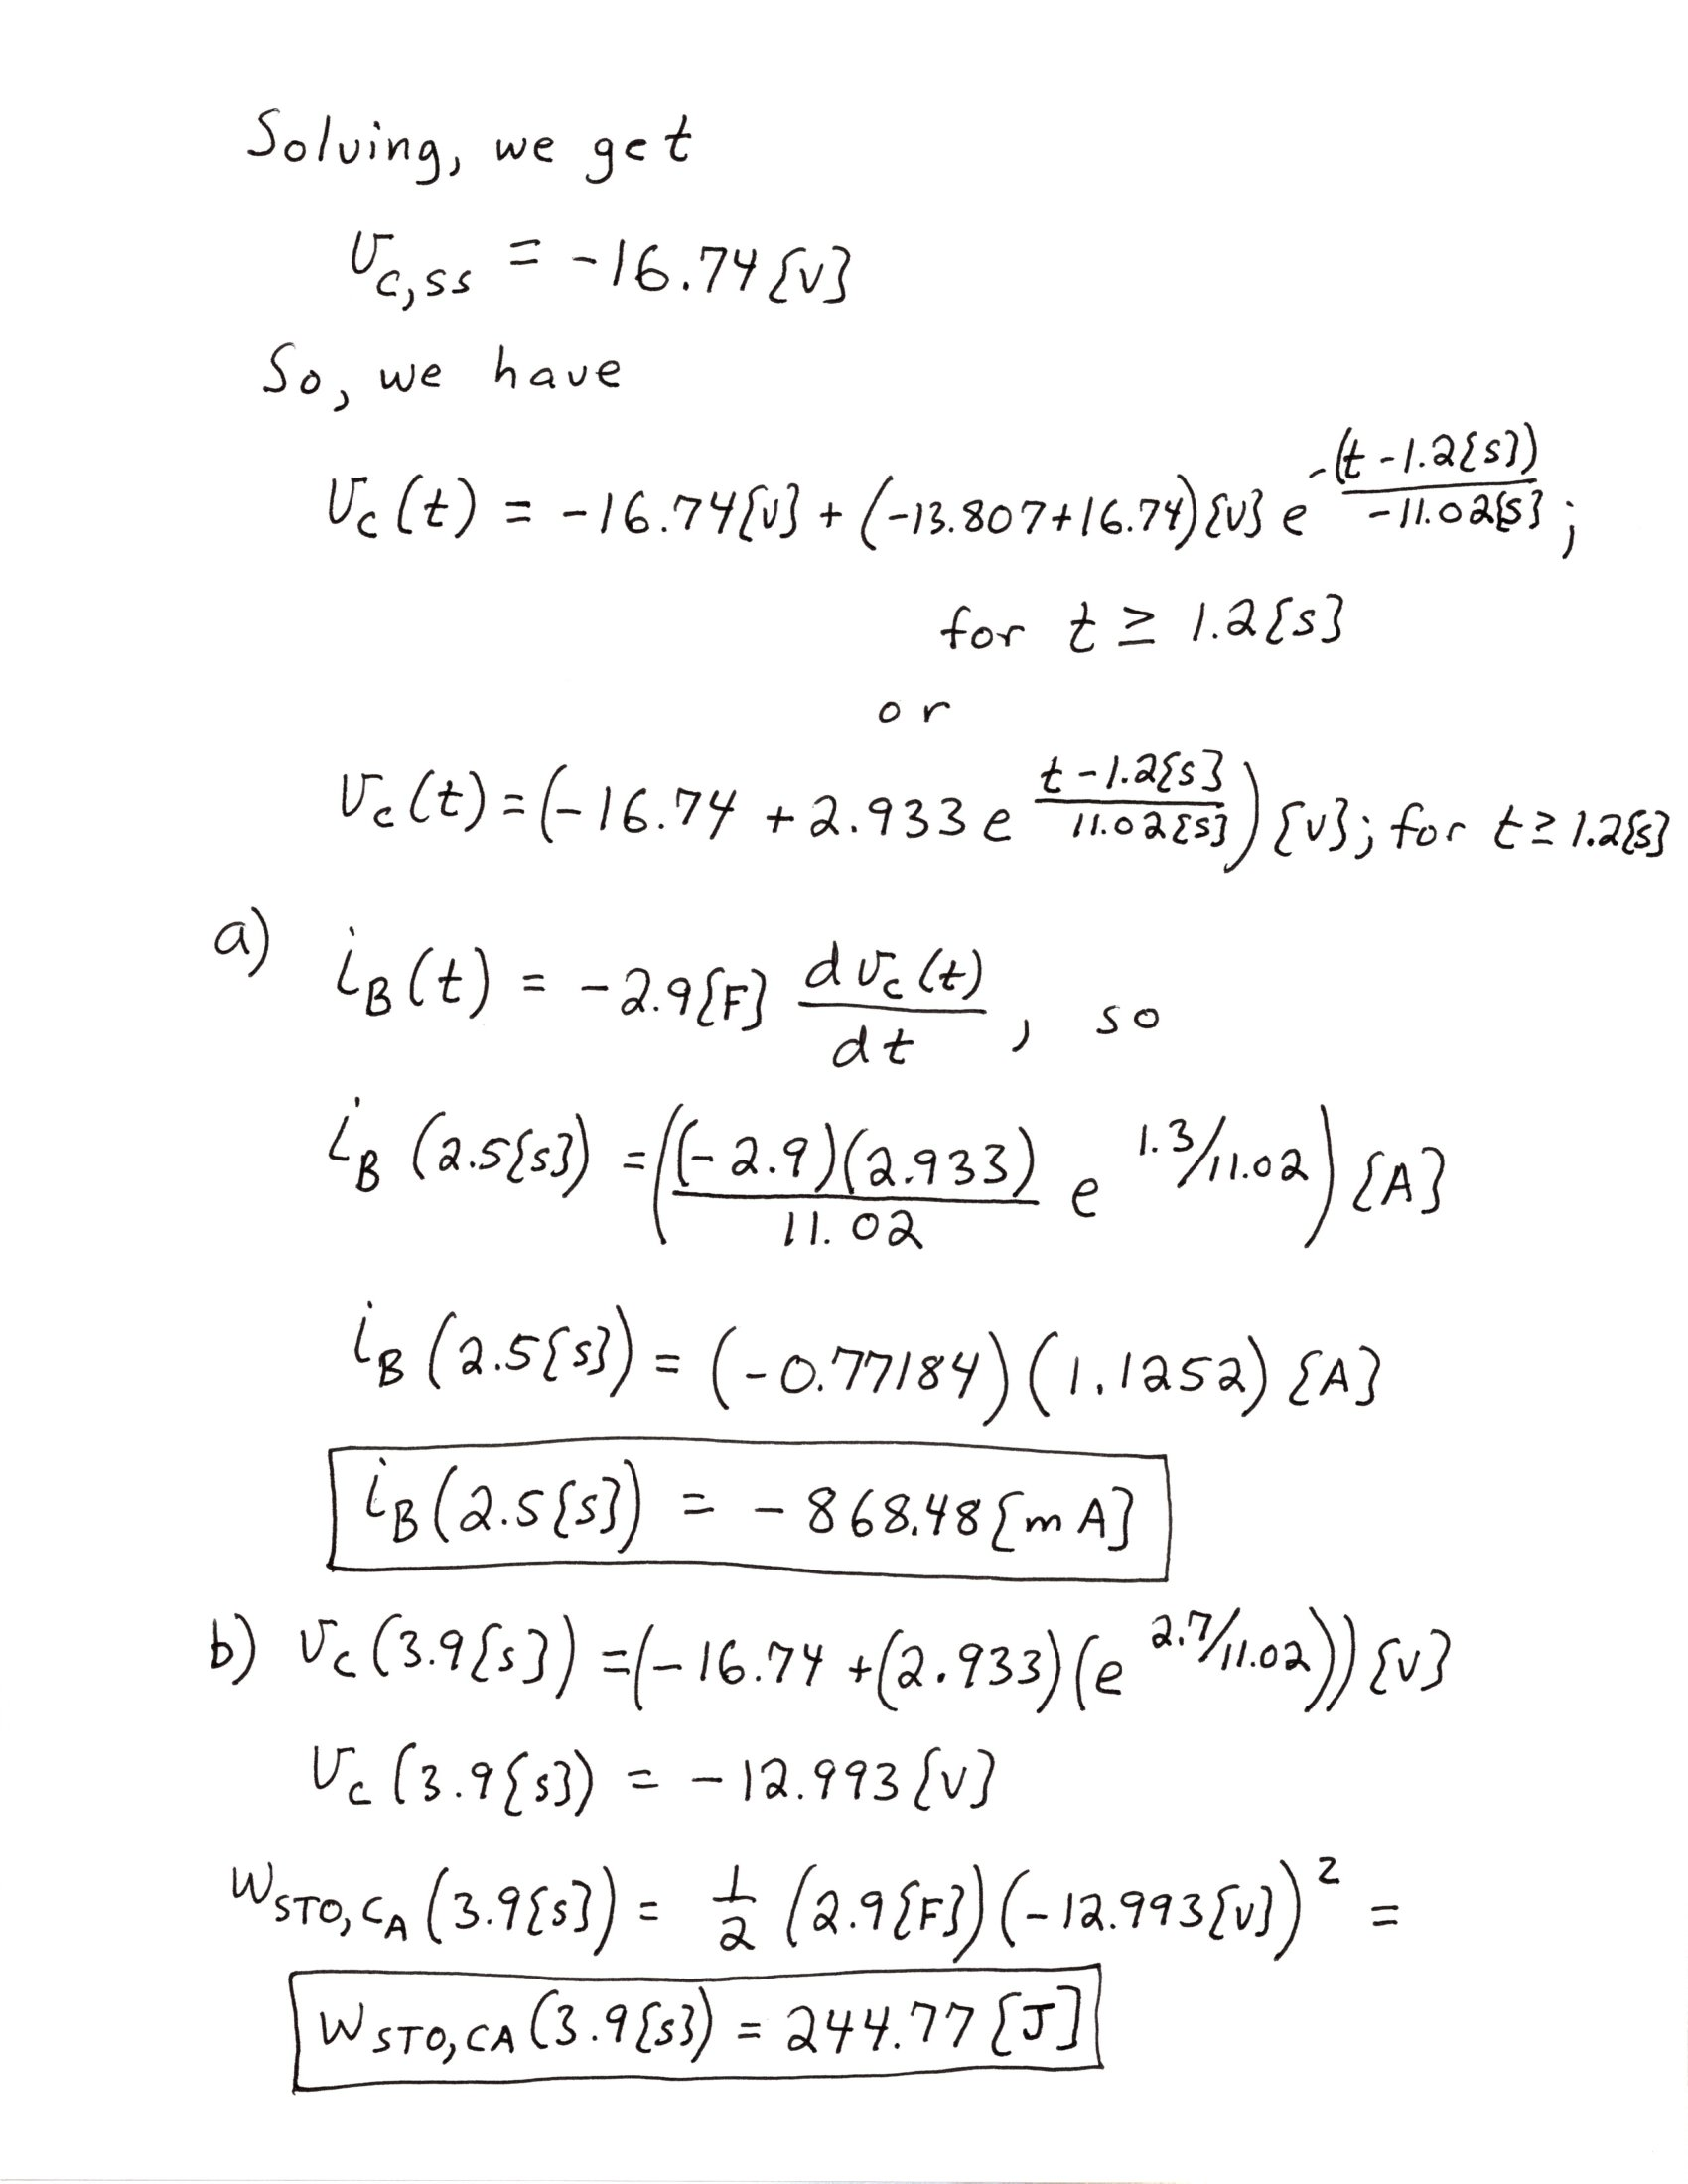 Solving, we get
v_{C,SS} = -16.74 {V}
So, we have
v_C(t) = -16.74{V} + (-13.807+16.74){V} e^{-(t-1.2{s})/-11.02{s}};
for t ≥ 1.2{s}
or
v_C(t) = (-16.74 + 2.933 e^{t-1.2{s}/11.02{s}}) {V}; for t ≥ 1.2{s}
a) i_B(t) = -2.9{F} dv_C(t)/dt, so
i_B(2.5{s}) = ((-2.9)(2.933)/11.02 e^{1.3/11.02}) {A}
i_B(2.5{s}) = (-0.77184)(1.1252) {A}
i_B(2.5{s}) = -868.48{mA}
b) v_C(3.9{s}) = (-16.74 + (2.933)(e^{2.7/11.02})) {V}
v_C(3.9{s}) = -12.993{V}
W_{STO,CA}(3.9{s}) = 1/2 (2.9{F})(-12.993{V})^2 =
W_{STO,CA}(3.9{s}) = 244.77 {J}